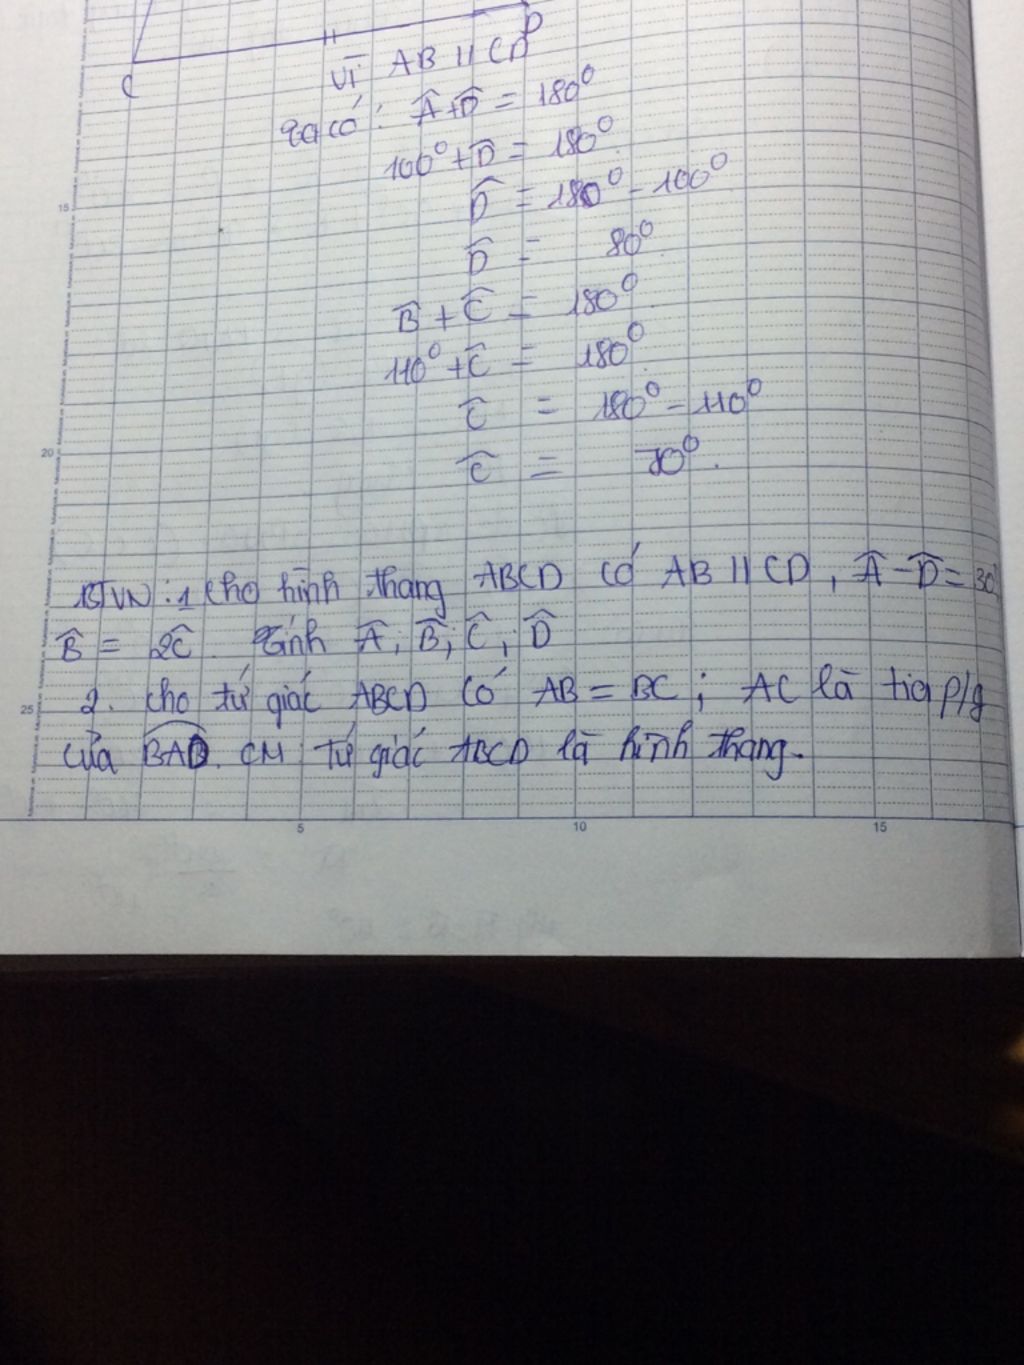 C
D
Vì AB || CD
Ta có: Â + D̂ = 180⁰
100⁰ + D̂ = 180⁰
D̂ = 180⁰ - 100⁰
D̂ = 80⁰
B̂ + Ĉ = 180⁰
110⁰ + Ĉ = 180⁰
Ĉ = 180⁰ - 110⁰
Ĉ = 70⁰.
15
20
BTVN: 1 Cho hình thang ABCD có AB || CD, Â - D̂ = 30⁰,
B̂ = 2Ĉ. Tính Â; B̂; Ĉ; D̂
2. Cho tứ giác ABCD có AB = BC; AC là tia p/g
25
của BAD. CM tứ giác ABCD là hình thang.
5 10 15